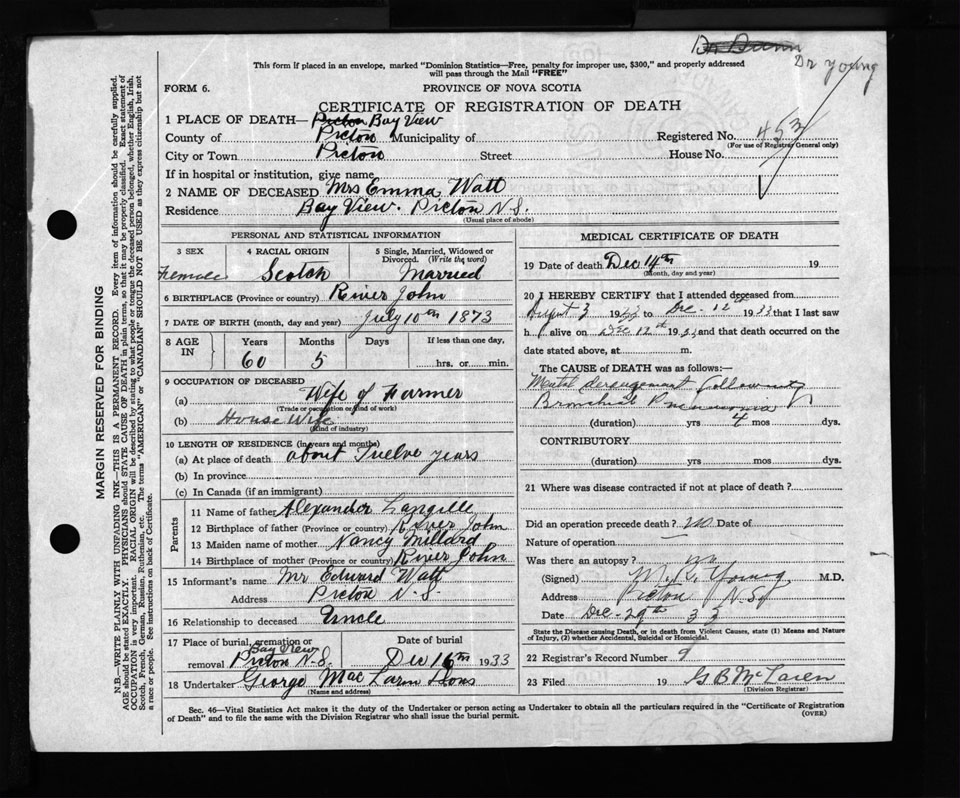 Dr Dunn
Dr Young
This form if placed in an envelope, marked "Dominion Statistics—Free, penalty for improper use, $300," and properly addressed
will pass through the Mail "FREE"
FORM 6.
PROVINCE OF NOVA SCOTIA
CERTIFICATE OF REGISTRATION OF DEATH
1 PLACE OF DEATH— Picton Bay View
County of Picton Municipality of Registered No. 453
(For use of Registrar General only)
City or Town Picton Street House No.
If in hospital or institution, give name
2 NAME OF DECEASED Mrs Emma Watt
Residence Bay View. Picton N.S.
(Usual place of abode)
MARGIN RESERVED FOR BINDING
N.B.—WRITE PLAINLY WITH UNFADING INK—THIS IS A PERMANENT RECORD. Every item of information should be carefully supplied.
AGE should be stated EXACTLY. PHYSICIANS should STATE CAUSE OF DEATH in plain terms, so that it may be properly classified. Exact statement of
OCCUPATION is very important. RACIAL ORIGIN will be described by stating to what people or tongue the deceased person belonged, whether English, Irish,
Scotch, French, German, Russian, Ruthenian, etc. The terms "AMERICAN" or "CANADIAN" SHOULD NOT BE USED as they express citizenship but not
a race or people. See instructions on back of Certificate.
PERSONAL AND STATISTICAL INFORMATION
3 SEX 4 RACIAL ORIGIN 5 Single, Married, Widowed or
Divorced. (Write the word)
Female Scotch Married
6 BIRTHPLACE (Province or country) River John
7 DATE OF BIRTH (month, day and year) July 10th 1873
8 AGE IN Years Months Days If less than one day,
60 5 hrs. or min.
9 OCCUPATION OF DECEASED
(a) Wife of Farmer
(Trade or occupation or kind of work)
(b) House Wife
(Kind of industry)
10 LENGTH OF RESIDENCE (in years and months)
(a) At place of death about Twelve years
(b) In province
(c) In Canada (if an immigrant)
Parents
11 Name of father Alexander Langille
12 Birthplace of father (Province or country) River John
13 Maiden name of mother Nancy Millard
14 Birthplace of mother (Province or country) River John
15 Informant's name Mr Edward Watt
Address Picton N.S.
16 Relationship to deceased Uncle
17 Place of burial, cremation or Date of burial
Bay View
removal Picton N.S. Dec 16th 1933
18 Undertaker George MacLarn Sons
(Name and address)
MEDICAL CERTIFICATE OF DEATH
19 Date of death Dec 14th 19
(Month, day and year)
20 I HEREBY CERTIFY that I attended deceased from
August 3 19 to Dec. 12th 1933 that I last saw
h alive on Dec 12th 19 and that death occurred on the
date stated above, at m.
The CAUSE OF DEATH was as follows:—
Mental derangement following
Bronchial Pneumonia
(duration) yrs 4 mos dys.
CONTRIBUTORY
(duration) yrs. mos. dys.
21 Where was disease contracted if not at place of death?
Did an operation precede death? no Date of
Nature of operation
Was there an autopsy? no
(Signed) Young M.D.
Address Picton N.S.
Date Dec-29th 33
State the Disease causing Death, or in death from Violent Causes, state (1) Means and Nature
of Injury, (2) whether Accidental, Suicidal or Homicidal.
22 Registrar's Record Number 9
23 Filed 19 G B McLaren
(Division Registrar)
Sec. 46—Vital Statistics Act makes it the duty of the Undertaker or person acting as Undertaker to obtain all the particulars required in the "Certificate of Registration
of Death" and to file the same with the Division Registrar who shall issue the burial permit.
(OVER)